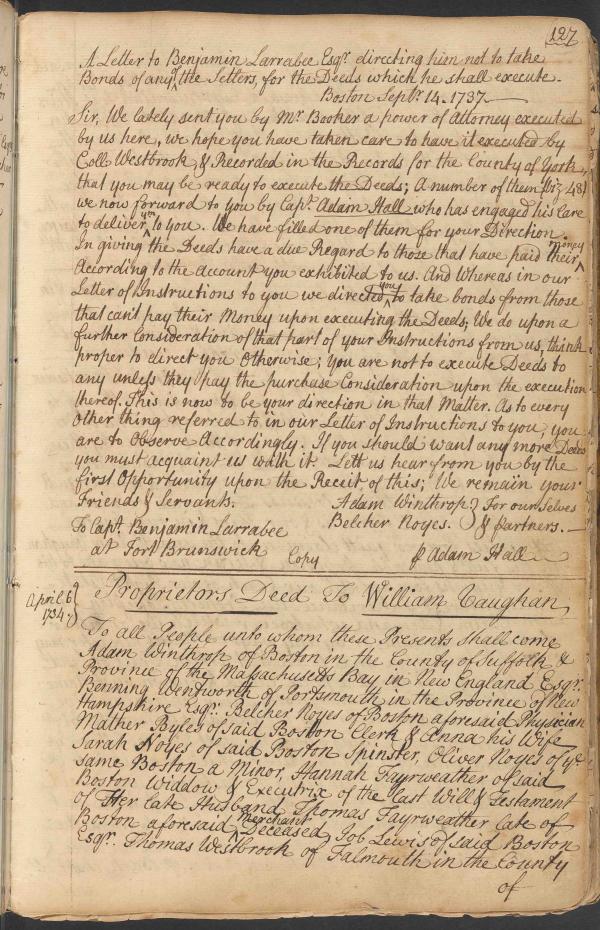 127
A Letter to Benjamin Larrabee Esqr. directing him not to take
Bonds of any of the Setlers, for the Deeds which he shall execute.
Boston Septr. 14. 1737.
Sir, We lately sent you by Mr. Booker a power of Attorney executed
by us here, we hope you have taken care to have it executed by
Coll. Westbrook, & Recorded in the Records for the County of York,
that you may be ready to execute the Deeds; A number of them (viz. 48)
we now forward to you by Capt. Adam Hall who has engaged his Care
to deliver ym to you. We have filled one of them for your Direction.
In giving the Deeds have a due Regard to those that have paid their money
According to the account you exhibited to us. And Whereas in our
Letter of Instructions to you we directed you to take bonds from those
that can't pay their Money upon executing the Deeds; We do upon a
further Consideration of that part of your Instructions from us, think
proper to direct you Otherwise; you are not to execute Deeds to
any unless they pay the purchase Consideration upon the execution
thereof. This is now to be your direction in that Matter. As to every
Other thing referred to in our Letter of Instructions to you, you
are to Observe Accordingly. If you should want any more Deeds
you must acquaint us with it. Lett us hear from you by the
first Opportunity upon the Receit of this; We remain your
Friends & Servants.
Adam Winthrop } For our Selves
Belcher Noyes. } & Partners.
To Capt. Benjamin Larrabee
at Fort Brunswick
Copy
Adam Hall
April 6
1734.
Proprietors Deed To William Vaughan
To all People unto whom these Presents shall come
Adam Winthrop of Boston in the County of Suffolk &
Province of the Massachusetts Bay in New England Esqr.
Benning Wentworth of Portsmouth in the Province of New
Hampshire Esqr. Belcher Noyes of Boston aforesaid Physician
Mather Byles of said Boston Clerk & Anna his Wife
Sarah Noyes of said Boston Spinster, Oliver Noyes of ye.
same Boston a Minor, Hannah Fayrweather of said
Boston Widdow & Executrix of the last Will & Testament
of Her late Husband Thomas Fayrweather late of
Boston aforesaid Merchant Deceased, Job Lewis of said Boston
Esqr. Thomas Westbrook of Falmouth in the County
of